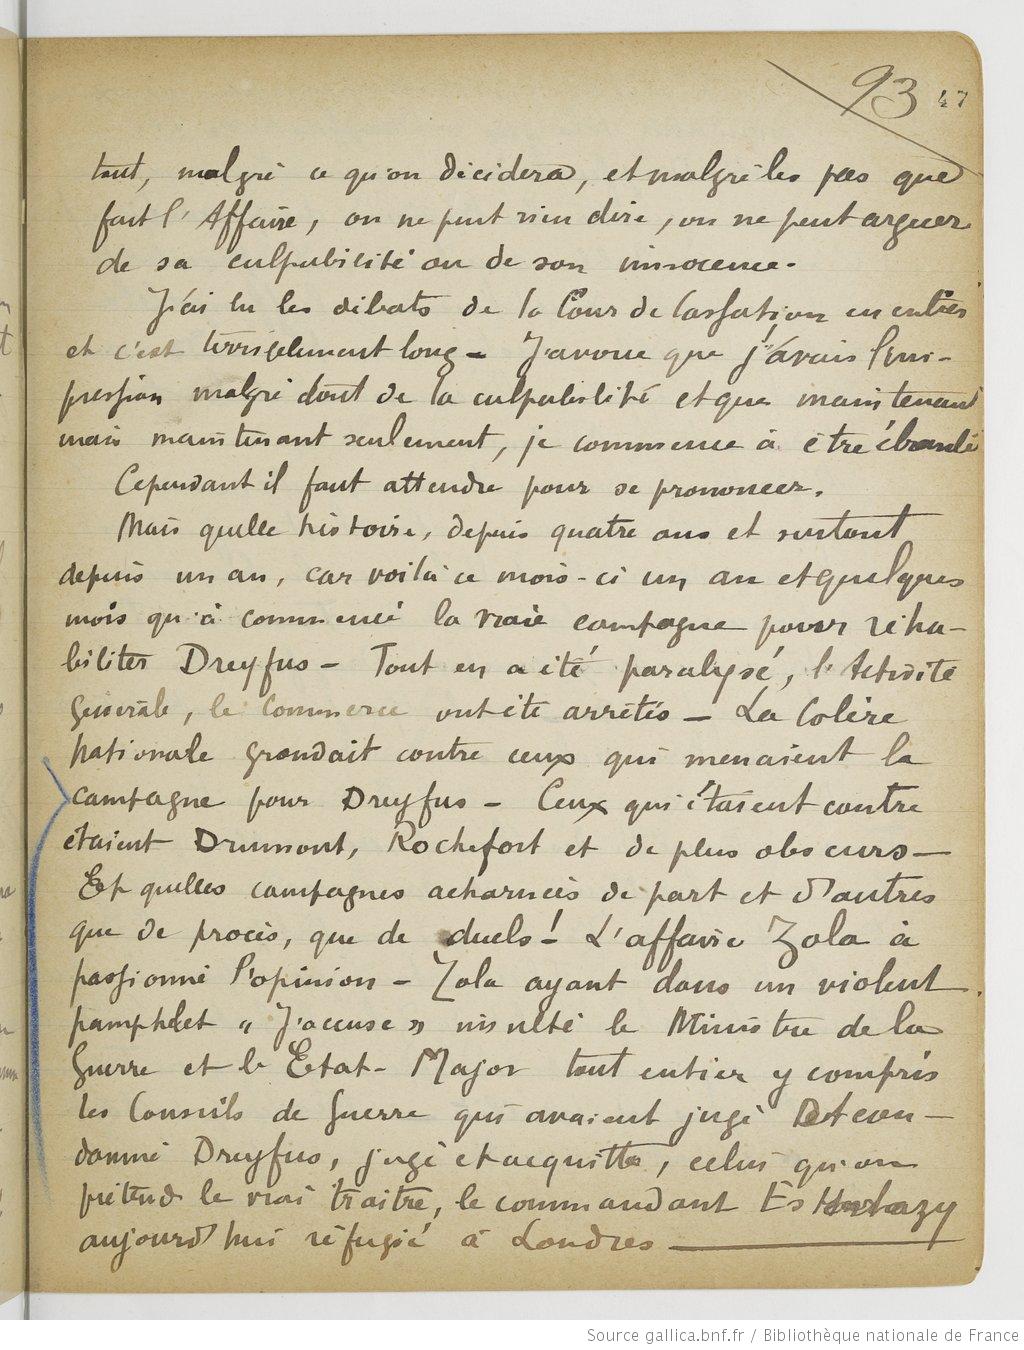 93 47
tant, malgré ce qu'on décidera, et malgré les pas que
fait l'Affaire, on ne peut rien dire, on ne peut arguer
de sa culpabilité ou de son innocence.
J'ai lu les débats de la Cour de Cassation en entier
et c'est terriblement long - J'avoue que j'avais l'im-
pression malgré tout de la culpabilité et que maintenant
mais maintenant seulement, je commence à être ébranlé
Cependant il faut attendre pour se prononcer.
Mais quelle histoire, depuis quatre ans et surtout
depuis un an, car voilà ce mois-ci un an et quelques
mois qu'à commencé la vraie campagne pour réha-
biliter Dreyfus - Tout en a été paralysé, l'Activité
Générale, le Commerce ont été arrêtés - La Colère
Nationale grondait contre ceux qui menaient la
campagne pour Dreyfus - Ceux qui étaient contre
étaient Drumont, Rochefort et de plus obscurs -
Et quelles campagnes acharnées de part et d'autres
que de procès, que de duels! L'affaire Zola à
passionné l'opinion - Zola ayant dans un violent
pamphlet "J'accuse" insulté le Ministre de la
Guerre et le Etat-Major tout entier y compris
les Conseils de Guerre qui avaient jugé et con-
damné Dreyfus, jugé et acquitté, celui qu'on
prétend le vrai traitre, le commandant Esterhazy
aujourd'hui réfugié à Londres
Source gallica.bnf.fr / Bibliothèque nationale de France